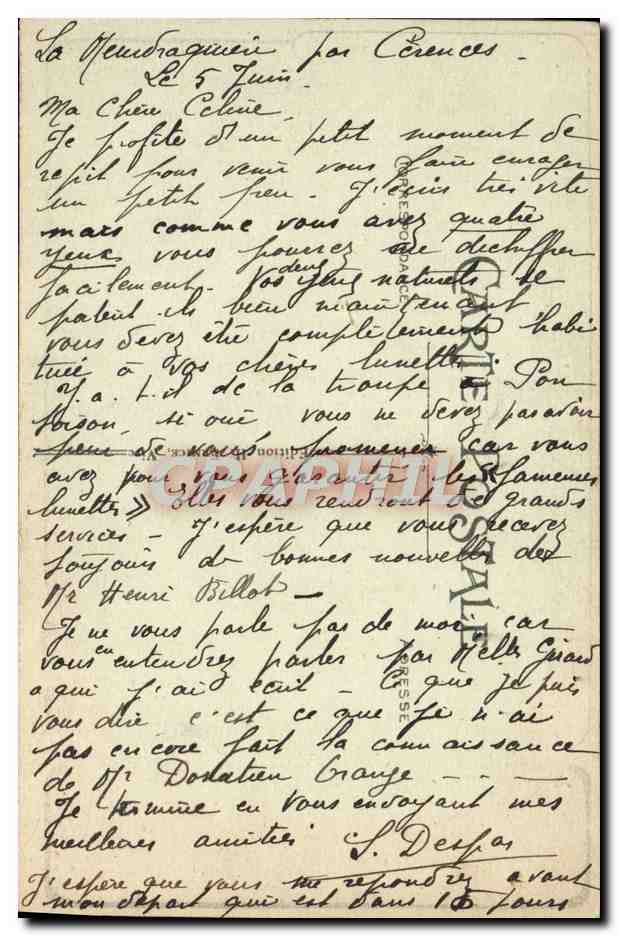 La Meurdraquière par Cérences -
Le 5 Juin -
Ma Chère Céline,
Je profite d'un petit moment de
repit pour venir vous faire enrager
un petit peu. J'écris très vite
mais comme vous avez quatre
yeux vous pourrez me dechiffrer
facilement. Vos deux yeux naturels se
patent-ils bien maintenant
vous devez être complètement habi
tuée à vos chères lunettes.
Y.a.t.il de la troupe à Pon
toison, si oui vous ne devez pas avoir
peur de vous promener car vous
avez pour vous garantir les « fameuses
lunettes » Elles vous rendront de grands
services - J'espère que vous recevez
toujours de bonnes nouvelles de
Mr Henri Billot -
Je ne vous parle pas de moi car
vous en entendrez parler par Melle Girard
a qui j'ai écrit - Ce que je puis
vous dire c'est ce que je n'ai
pas encore fait la connaissance
de Mr Donatien Grange - - -
Je termine en vous envoyant mes
meilleures amitiés S. Despas
J'espère que vous me repondrez avant
mon départ qui est dans 15 jours
CARTE POSTALE
CORRESPONDANCE
ADRESSE
CARAPHIL